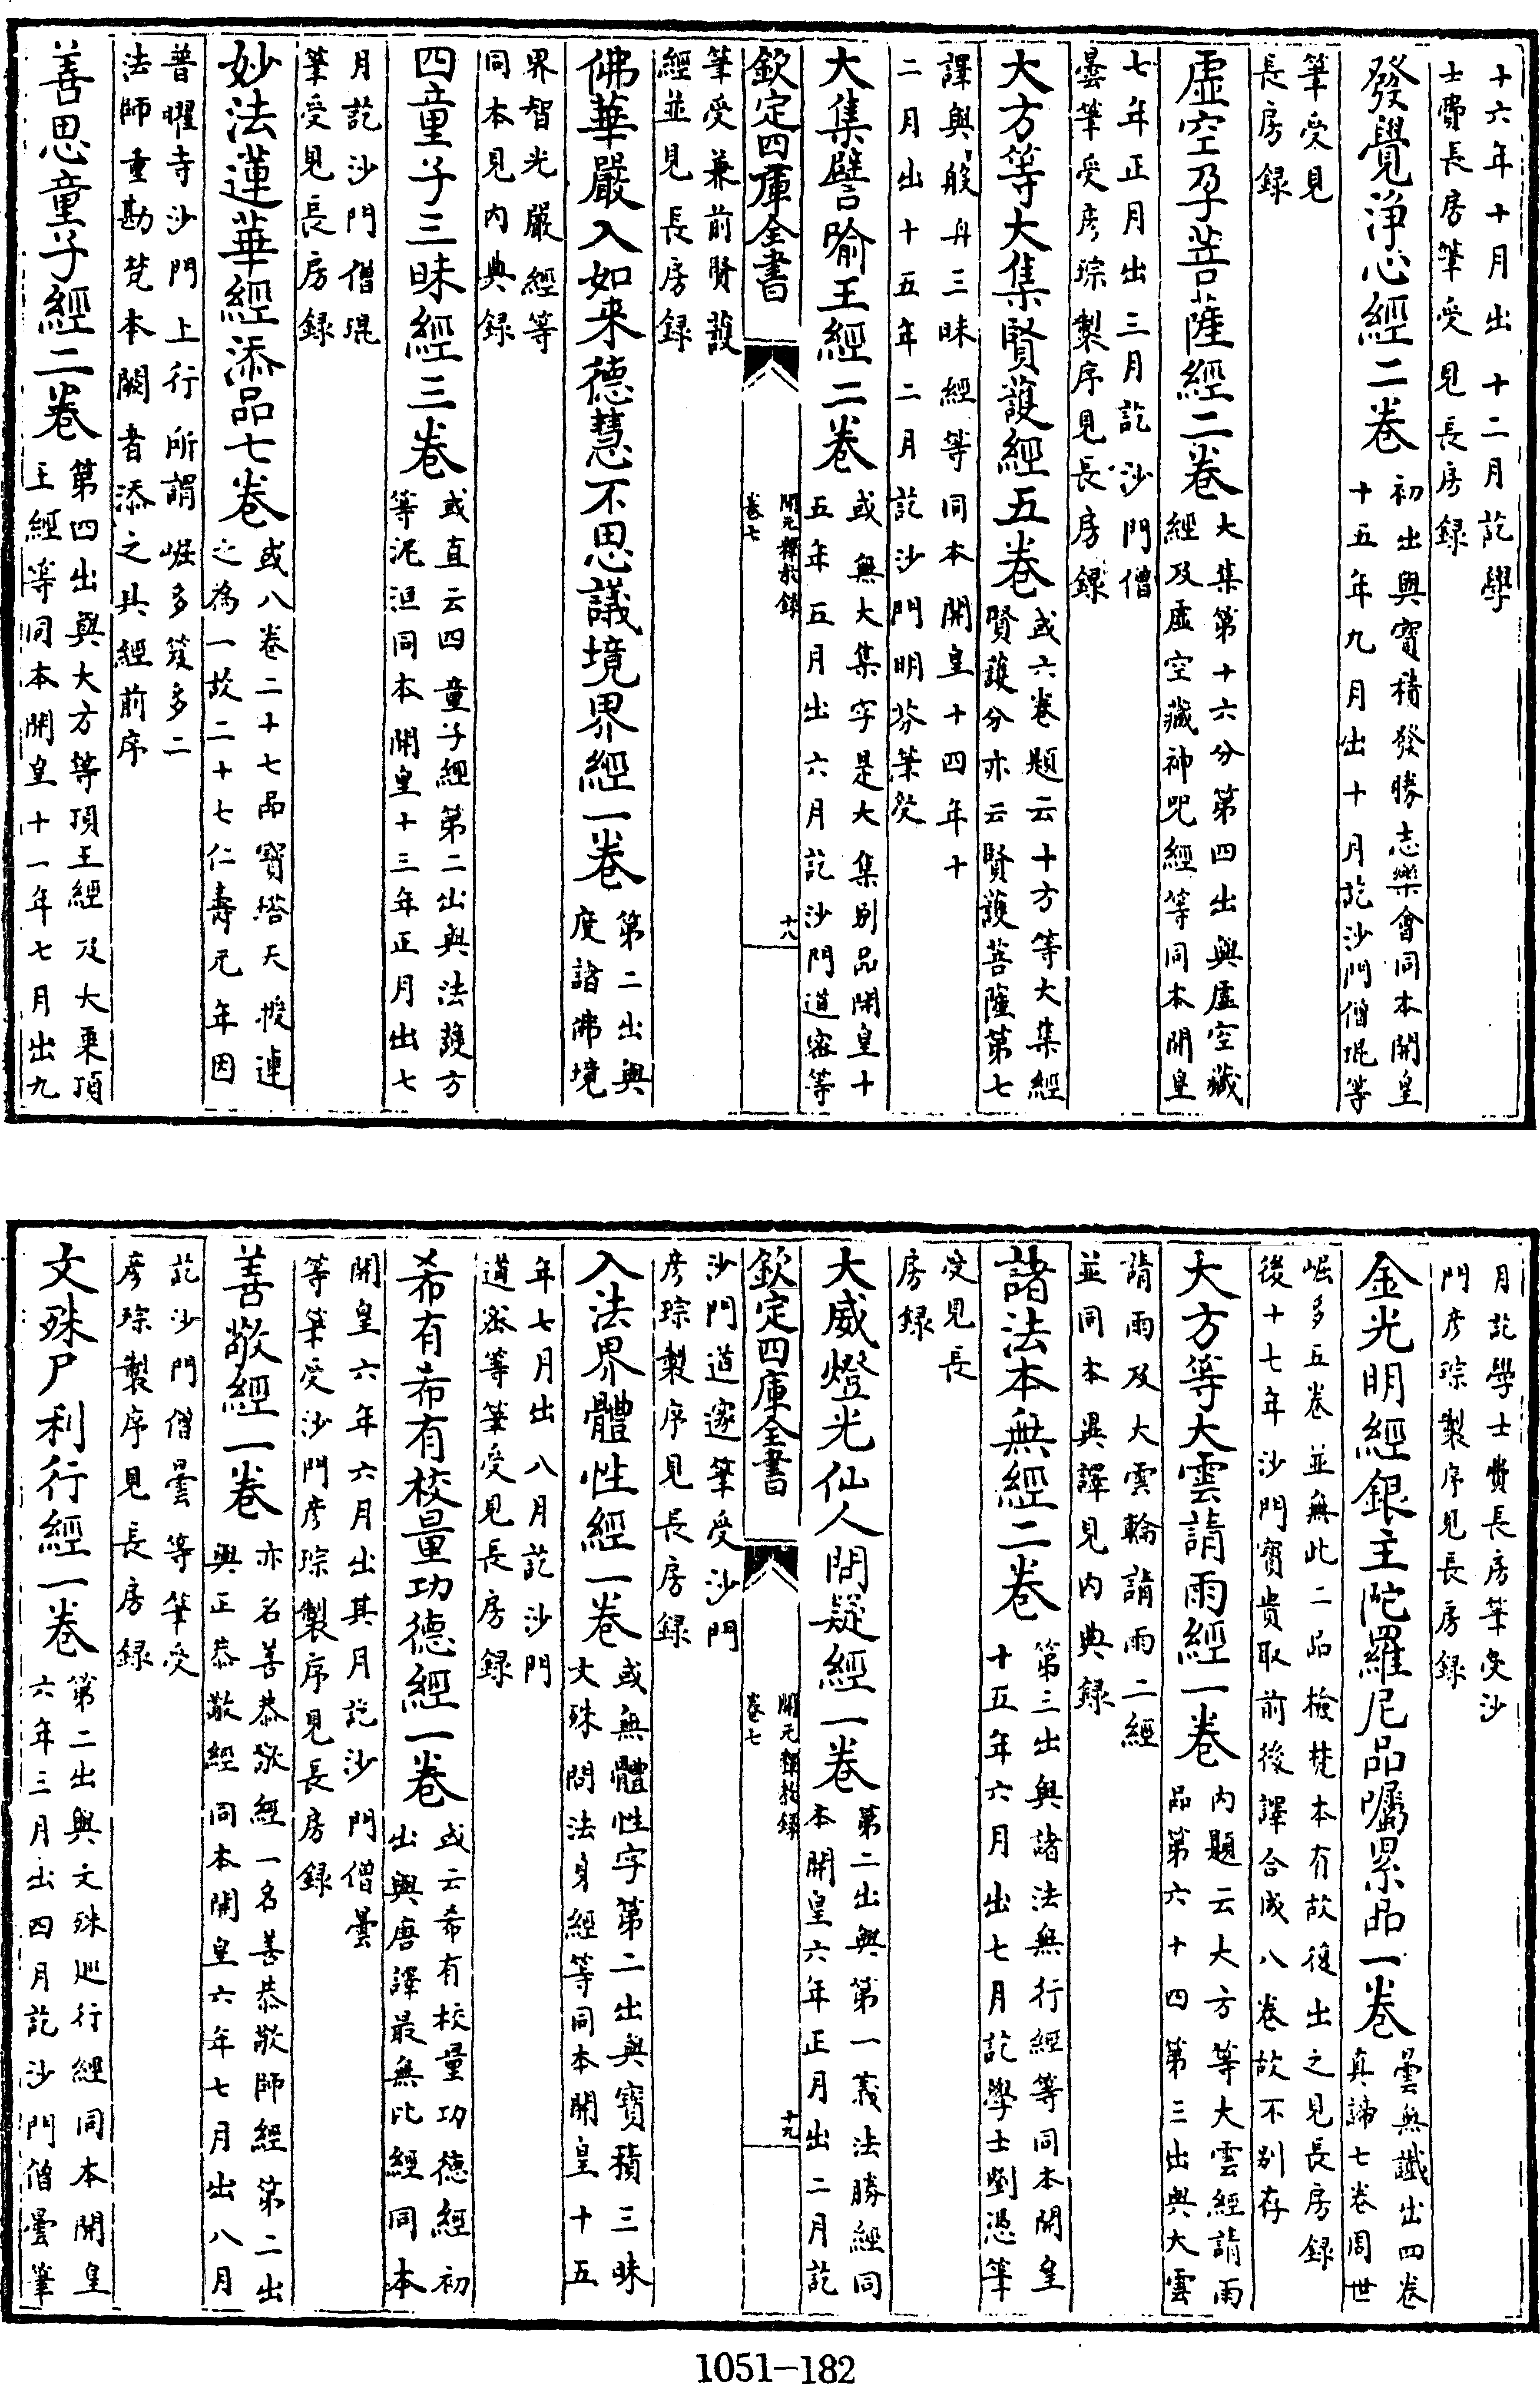 十六年十月出十二月訖學
士費長房筆受見長房録
發覺淨心經二卷
初出與寳積發勝志樂會同本開皇
十五年九月出十月訖沙門僧琨等
筆受見
長房録
虚空孕菩薩經二卷
大集第十六分第四出與虚空藏
經及虚空藏神呪經等同本開皇
七年正月出三月訖沙門僧
曇筆受彦琮製序見長房録
大方等大集賢護經五卷
或六卷題云十方等大集經
賢護分亦云賢護菩薩第七
譯與般舟三昧經等同本開皇十四年十
二月出十五年二月訖沙門明芬筆受
大集譬喻王經二卷
或無大集字是大集别品開皇十
五年五月出六月訖沙門道宻等
欽定四庫全書
開元釋教録
卷七
十八
筆受兼前賢護
經並見長房録
佛華嚴入如来德慧不思議境界經一卷
第二出與
度諸佛境
界智光嚴經等
同本見内典録
四童子三昧經三卷
或直云四童子經第二出與法護方
等泥洹同本開皇十三年正月出七
月訖沙門僧琨
筆受見長房録
妙法蓮華經添品七卷
或八卷二十七品寳塔天授連
之為一故二十七仁壽元年因
普曜寺沙門上行所謂崛多笈多二
法師重勘梵本闕者添之具經前序
善思童子經二卷
第四出與大方等頂王經及大乗頂
王經等同本開皇十一年七月出九
月訖學士費長房筆受沙
門彦琮製序見長房録
金光明經銀主陀羅尼品囑累品一卷
曇無讖出四卷
真諦七卷周世
崛多五卷並無此二品檢梵本有故復出之見長房録
後十七年沙門寳貴取前後譯合成八卷故不别存
大方等大雲請雨經一卷
内題云大方等大雲經請雨
品第六十四第三出與大雲
請雨及大雲輪請雨二經
並同本異譯見内典録
諸法本無經二卷
第三出與諸法無行經等同本開皇
十五年六月出七月訖學士劉憑筆
受見長
房録
大威燈光仙人問疑經一卷
第二出與第一義法勝經同
本開皇六年正月出二月訖
欽定四庫全書
開元釋教録
卷七
十九
沙門道邃筆受沙門
彦琮製序見長房録
入法界體性經一卷
或無體性字第二出與寳積三昧
文殊問法身經等同本開皇十五
年七月出八月訖沙門
道宻等筆受見長房録
希有希有校量功德經一卷
或云希有校量功德經初
出與唐譯最無比經同本
開皇六年六月出其月訖沙門僧曇
等筆受沙門彦琮製序見長房録
善敬經一卷
亦名善恭敬經一名善恭敬師經第二出
與正恭敬經同本開皇六年七月出八月
訖沙門僧曇等筆受
彦琮製序見長房録
文殊尸利行經一卷
第二出與文殊廵行經同本開皇
六年三月出四月訖沙門僧曇筆
1051-182